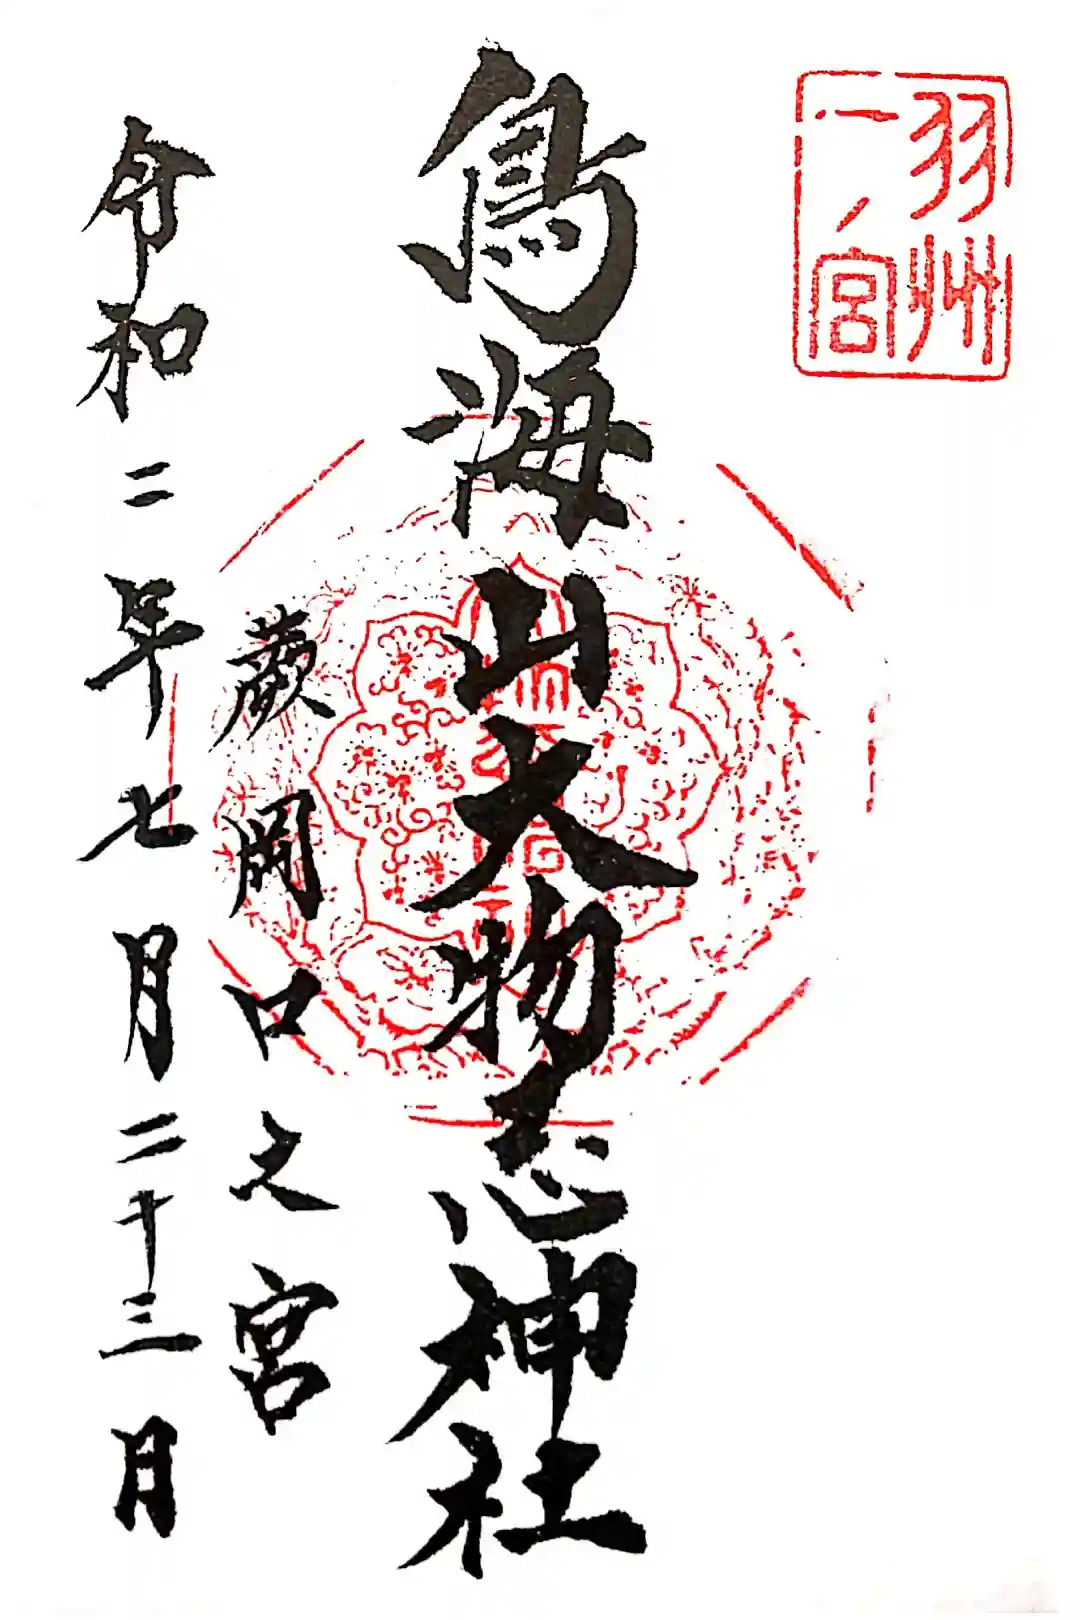 羽州
一ノ宮
鳥海山大物忌神社
蕨岡口之宮
令和二年七月二十三日